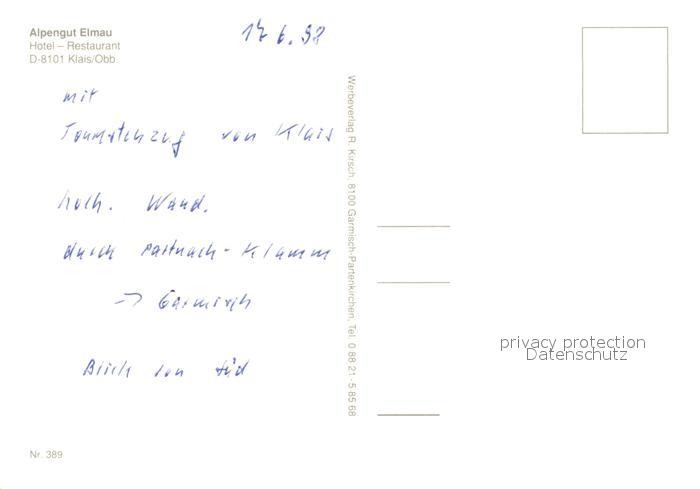 Alpengut Elmau
Hotel – Restaurant
D-8101 Klais/Obb.
17.6.98
mit
von Klais
hoch. Wand.
durch Partnach-Klamm
→ Garmisch
Blick von Süd
Werbeverlag R. Kirsch, 8100 Garmisch-Partenkirchen, Tel. 0 88 21 - 5 85 68
privacy protection
Datenschutz
Nr. 389